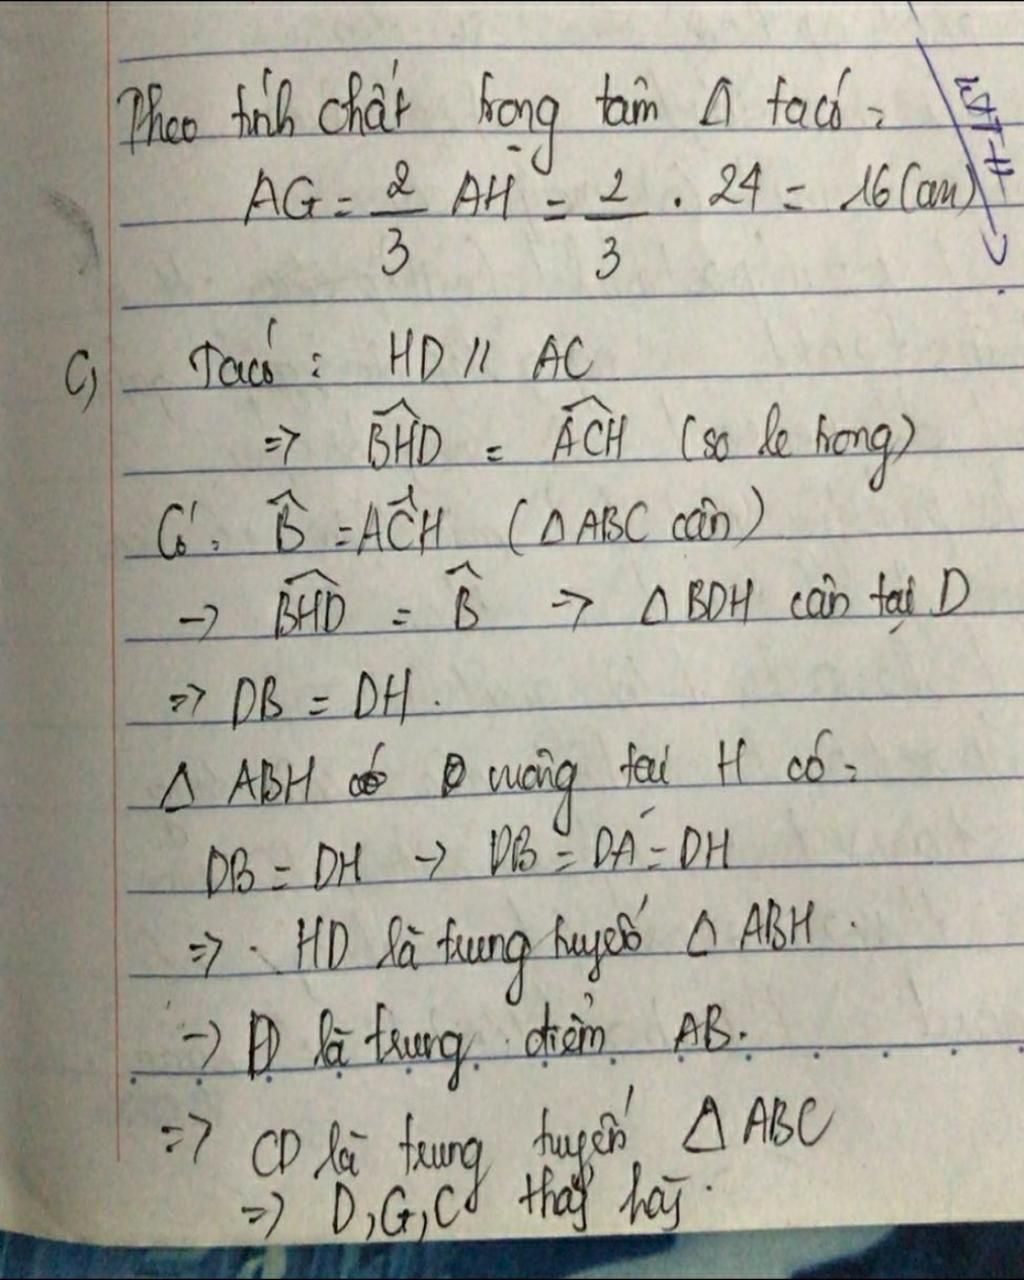 Theo tính chất trọng tâm Δ ta có:
AG = 2/3 AH = 2/3 . 24 = 16 (cm)
c) Ta có: HD // AC
=> \widehat{BHD} = \widehat{ACH} (so le trong)
Có: \widehat{B} = \widehat{ACH} (Δ ABC cân)
-> \widehat{BHD} = \widehat{B} => Δ BDH cân tại D
=> DB = DH.
Δ ABH vuông tại H có:
DB = DH -> DB = DA = DH
=> HD là trung tuyến Δ ABH.
-> D là trung điểm AB.
=> CD là trung tuyến Δ ABC
=> D, G, C thẳg hàg.